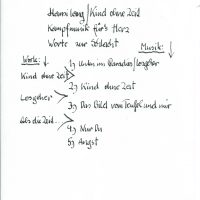 Henri Lang / Kind ohne Zeit
Kampfmusik für's Herz
Worte zur Schlacht
Musik:
Worte:
1.) Unten im Paradies / Losgeher
Kind ohne Zeit
2.) Kind ohne Zeit
Losgeher
3.) Das Bild vom Teufel und mir
Als die Zeit...
4.) Nur Du
5.) Angst